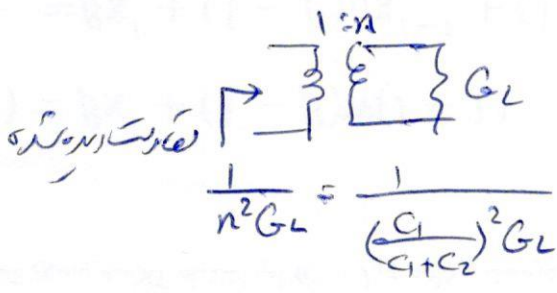 1:n
G_L
مقاومت دیده شده
1/(n²G_L) = 1/((C₁/(C₁+C₂))² G_L)